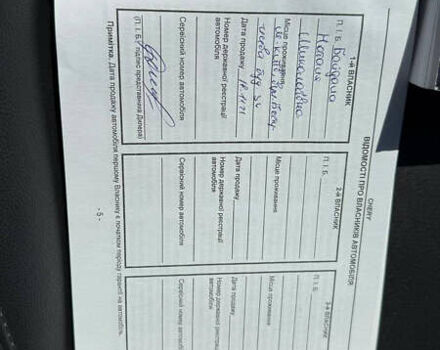 CHERY
ВІДОМОСТІ ПРО ВЛАСНИКІВ АВТОМОБІЛЯ
1-й ВЛАСНИК
П. І. Б.
Наталія
Місце проживання
Дата продажу
Номер державної реєстрації
автомобіля
Сервісний номер автомобіля
(П. І. Б., підпис представника Дилера)
2-й ВЛАСНИК
П. І. Б.
Місце проживання
Дата продажу
Номер державної реєстрації
автомобіля
Сервісний номер автомобіля
3-й ВЛАСНИК
П. І. Б.
Місце проживання
Дата продажу
Номер державної реєстрації
автомобіля
Сервісний номер автомобіля
Примітка. Дата продажу автомобіля першому Власнику є початком періоду гарантії на автомобіль.
- 5 -